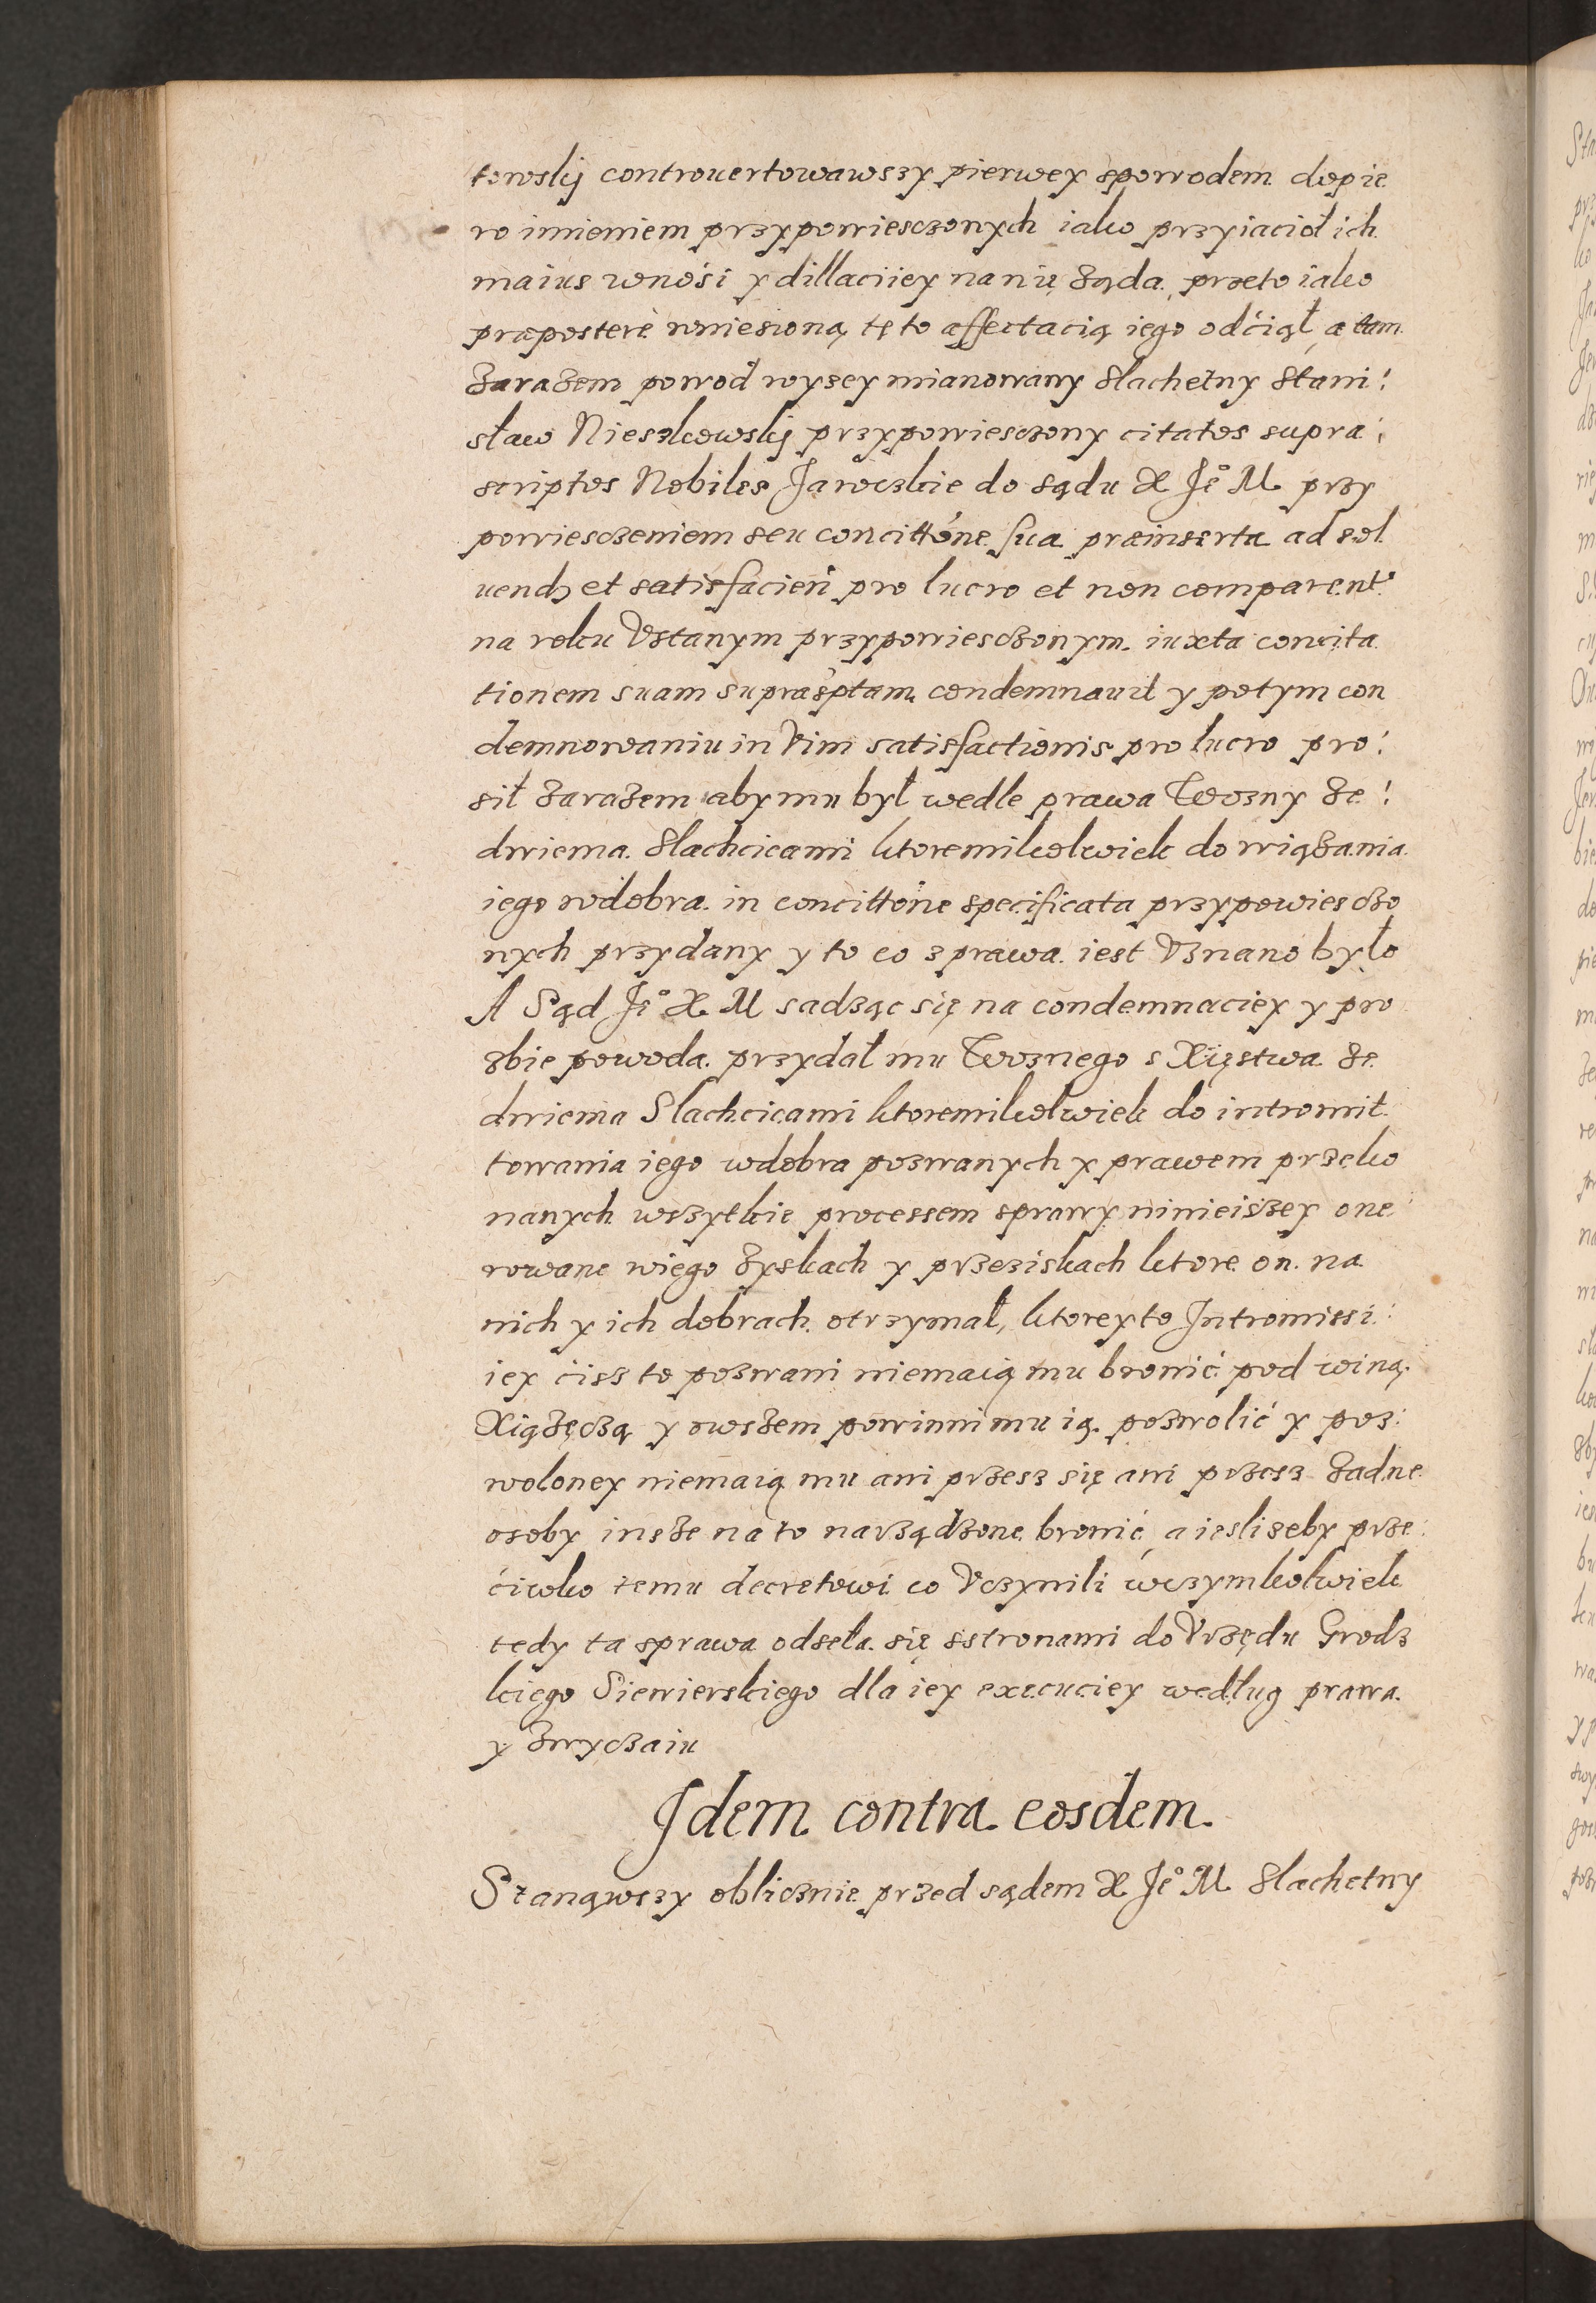 towskÿ controuertowawszy pierwey spowodem dopie
ro imieniem przypowiesczonych iako przyiacioł ich
maius wnośi y dillaciiey na nię ząda, przeto iako
præposterè wniesioną tę to affectacią iego odćiął, a tam
zarazem powod wyzey mianowany slachetny Stani:
sław Nieszkowskÿ przypowiesczony citatos supra:
scriptos Nobiles Jaroczkie do sądu X Je° M przy
powiesczeniem seu concittóne sua præinserta ad sol
uend et satisfacień pro lucro et non comparent
na roku Vstanym przypowiesczonym iuxta concita
tionem suam supraśptam condemnauit y potym con
demnowaniu in Vim satisfactionis pro lucro pro:
sił zarazem aby mu był wedle prawa Wozny ze:
dwiema slachcicami ktoremikolwiek do wiązania
iego wdobra in concittóne specificata przypowieszczo
nych przydany y to co z prawa iest Vznano było
A Sąd Je° X M sadząc się na condemnaciey y pro
zbie powoda przydał mu Woznego s Xięstwa ze
dwiema Slachcicami ktoremikolwiek do intromit
towania iego wdobra pozwanych y prawem przeko
nanych wszytkie processem sprawy ninieiszey one
rowane wiego zyskach y przeziskach ktore on na
nich y ich dobrach otrzymał, ktorey to Intromissi:
iey ciss to pozwani niemaią mu bronić pod winą
Xiązęczą y owszem powinni mu ią pozwolić y poz:
woloney niemaią mu ani przesz się ani przesz zadne
osoby insze na to narządzone bronić, a iesliseby prze:
ćiwko temu decretowi co Vczynili wczymkolwiek
tedy ta sprawa odseła się sstronami do Vrzędu Grodz
kiego Siewierskiego dla iey execuciey według prawa
y zwyczaiu
Idem contra eosdem.
Stanąwszy oblicznie przed sądem X Je° M slachetny